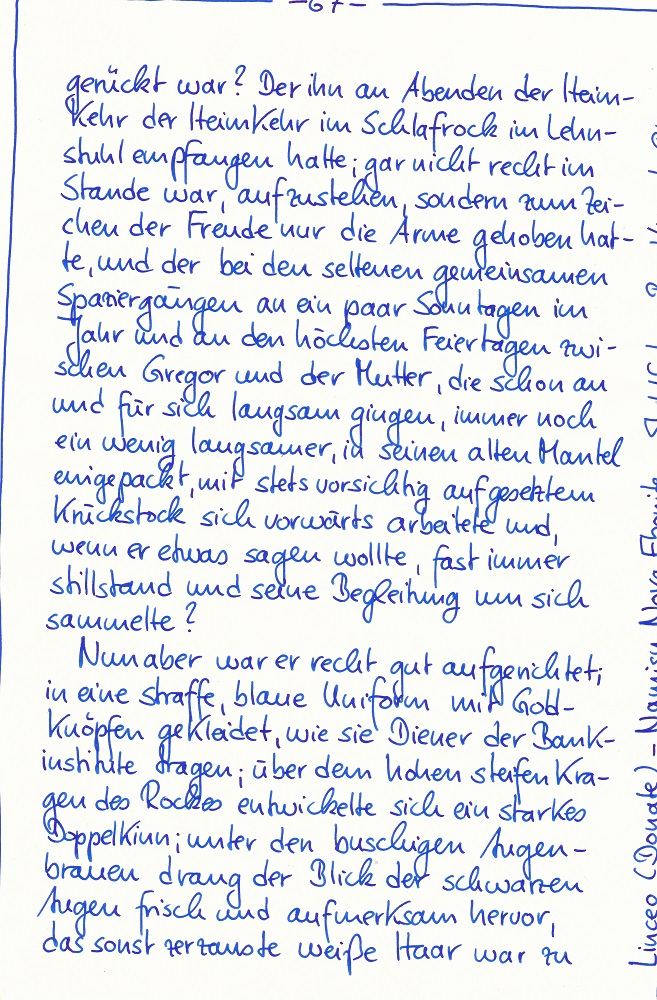 -67-
gerückt war? Der ihn an Abenden der Heim-
kehr der Heimkehr im Schlafrock im Lehn-
stuhl empfangen hatte; gar nicht recht im
Stande war, aufzustehen, sondern zum Zei-
chen der Freude nur die Arme gehoben hat-
te, und der bei den seltenen gemeinsamen
Spaziergängen an ein paar Sonntagen im
Jahr und an den höchsten Feiertagen zwi-
schen Gregor und der Mutter, die schon an
und für sich langsam gingen, immer noch
ein wenig langsamer, in seinen alten Mantel
eingepackt, mit stets vorsichtig aufgesetztem
Krückstock sich vorwärts arbeitete und,
wenn er etwas sagen wollte, fast immer
stillstand und seine Begleitung um sich
sammelte?
Nun aber war er recht gut aufgerichtet;
in eine straffe, blaue Uniform mit Gold-
knöpfen gekleidet, wie sie Diener der Bank-
institute tragen; über dem hohen steifen Kra-
gen des Rockes entwickelte sich ein starkes
Doppelkinn; unter den buschigen Augen-
brauen drang der Blick der schwarzen
Augen frisch und aufmerksam hervor,
das sonst zerzauste weiße Haar war zu
Linceo (Donate) -